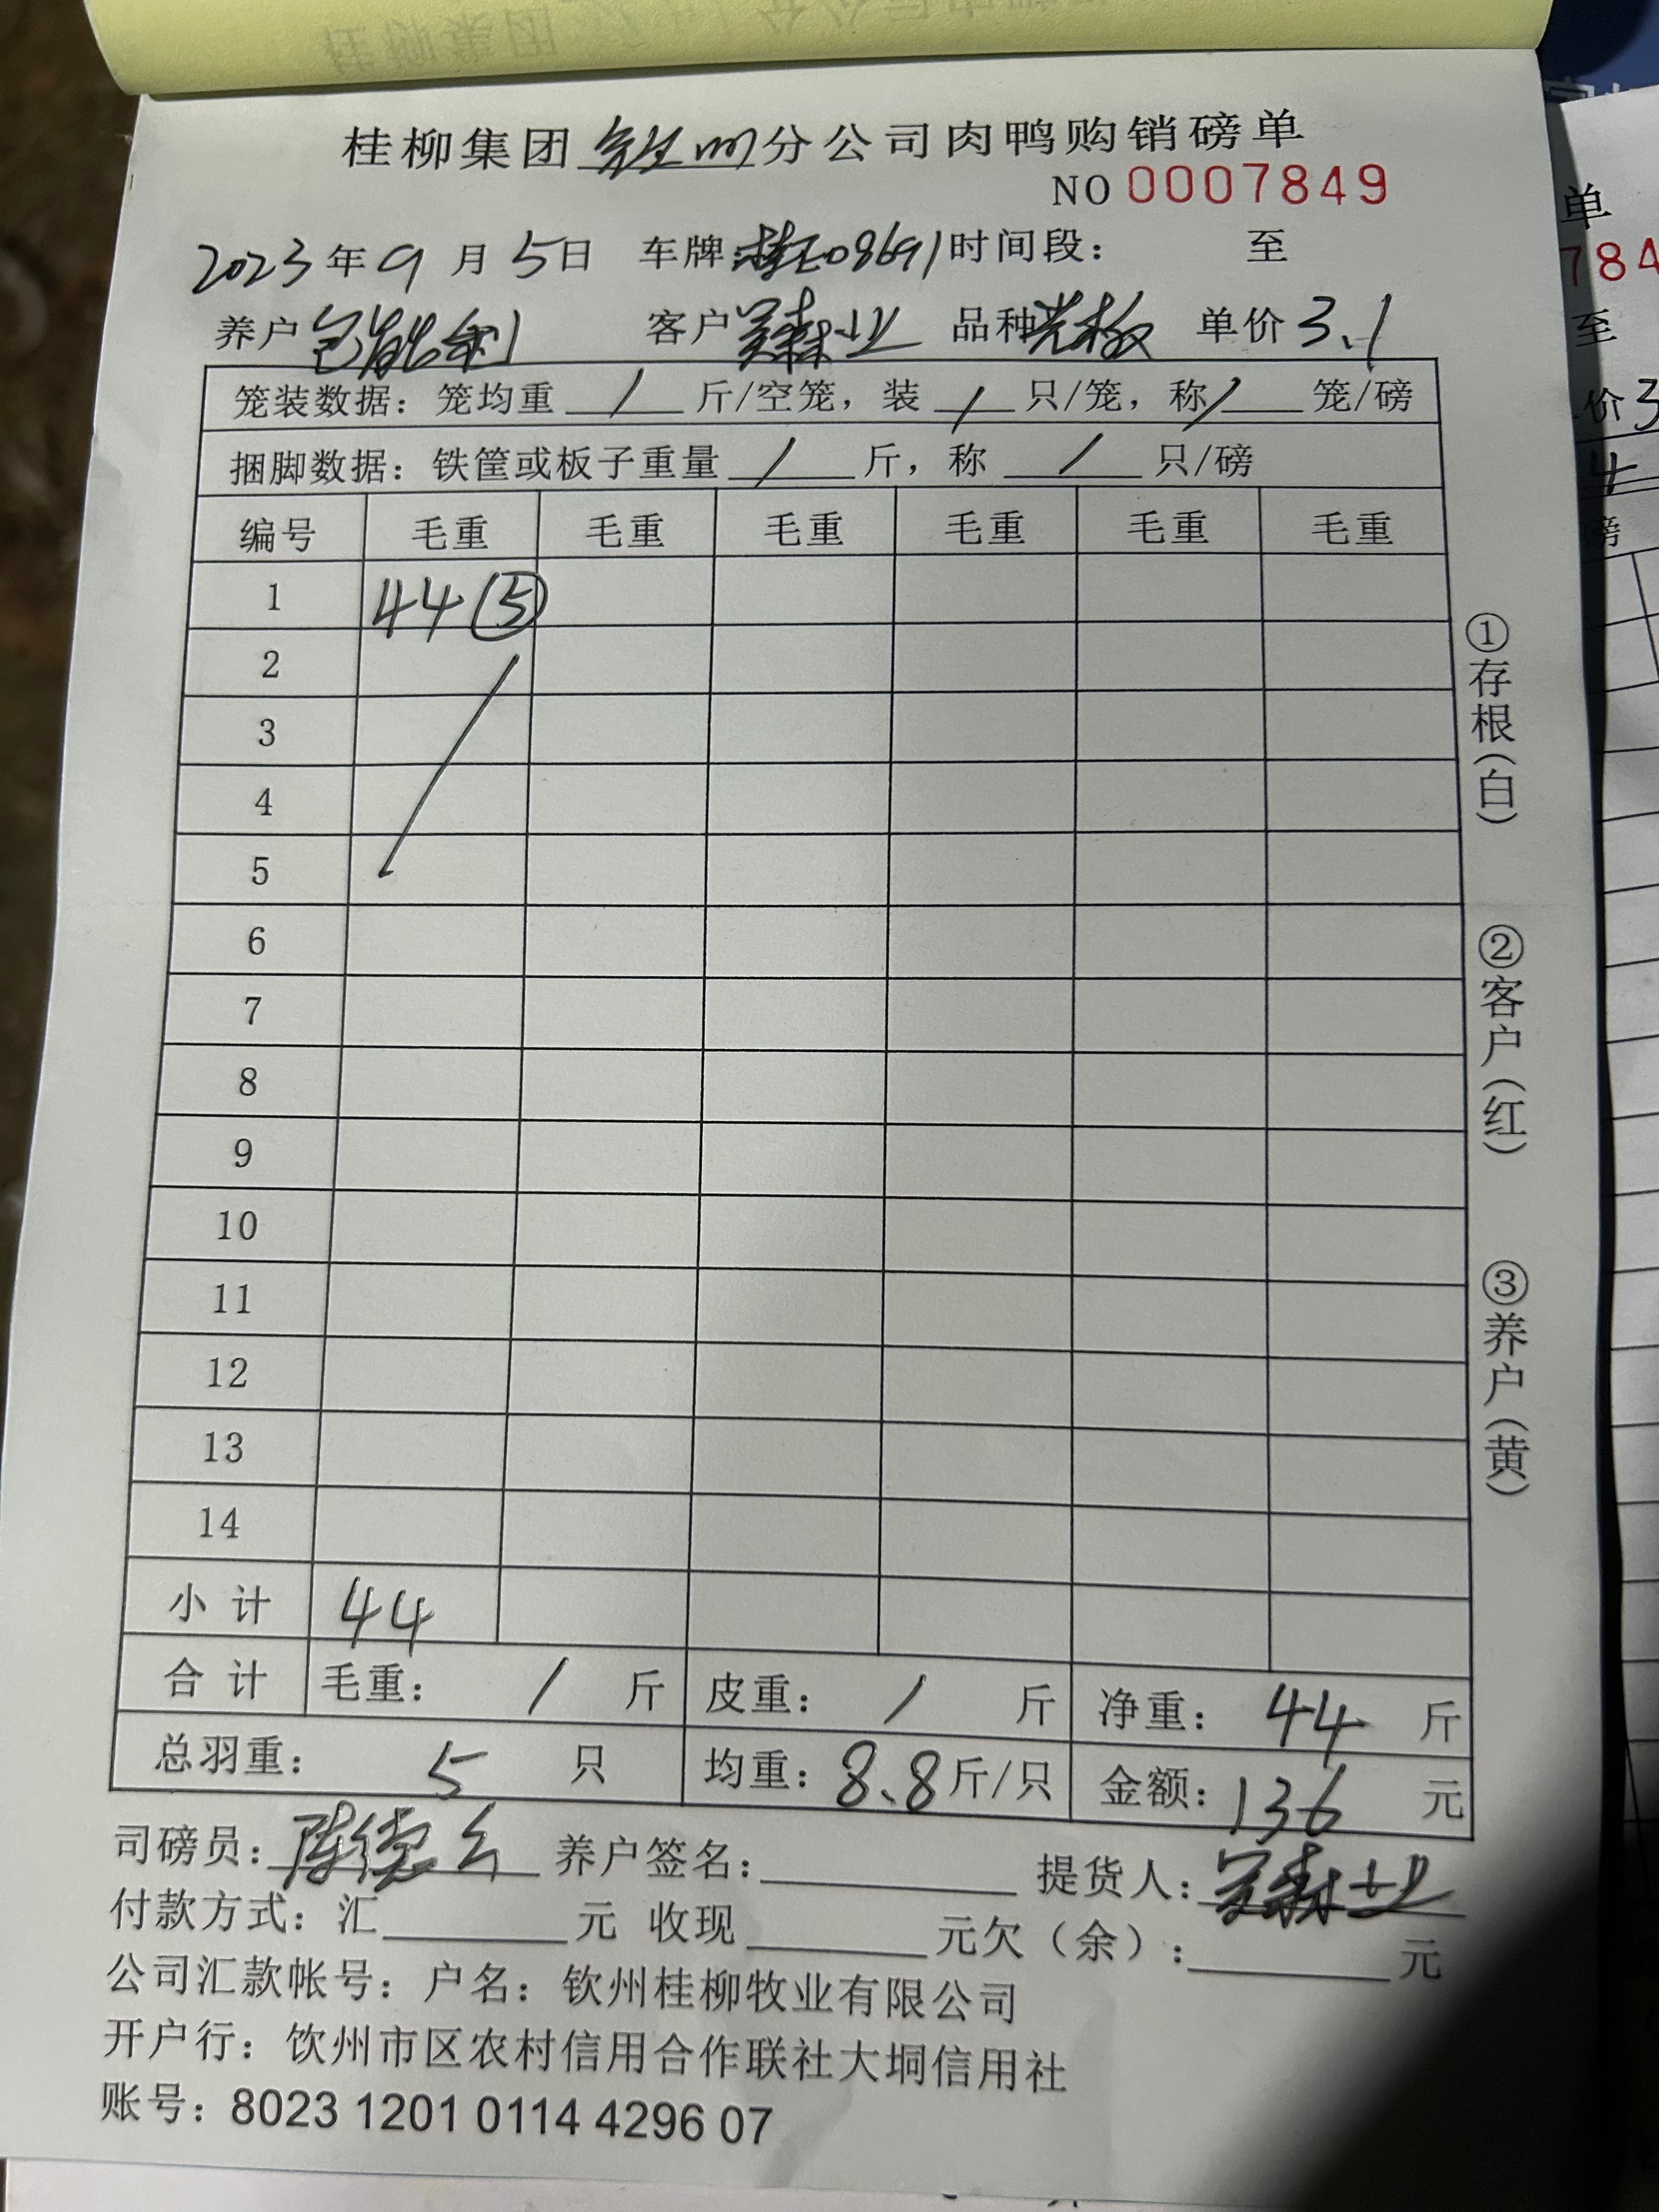 桂柳集团钦州分公司肉鸭购销磅单
NO 0007849
2023年9月5日 车牌:桂E08691 时间段: 至
养户 客户 吴森业 品种 光板 单价 3.1
笼装数据:笼均重 / 斤/空笼,装 / 只/笼,称 / 笼/磅
捆脚数据:铁筐或板子重量 / 斤,称 / 只/磅
编号 毛重 毛重 毛重 毛重 毛重 毛重
1 44 (5)
2
3
4
5
6
7
8
9
10
11
12
13
14
小计 44
合计 毛重: / 斤 皮重: / 斤 净重: 44 斤
总羽重: 5 只 均重: 8.8 斤/只 金额: 136 元
司磅员: 陈德 养户签名: 提货人: 吴森业
付款方式:汇 元 收现 元欠(余): 元
公司汇款帐号:户名:钦州桂柳牧业有限公司
开户行:饮州市区农村信用合作联社大垌信用社
账号:8023 1201 0114 4296 07
①存根(白)
②客户(红)
③养户(黄)
单
784
至
价3
磅